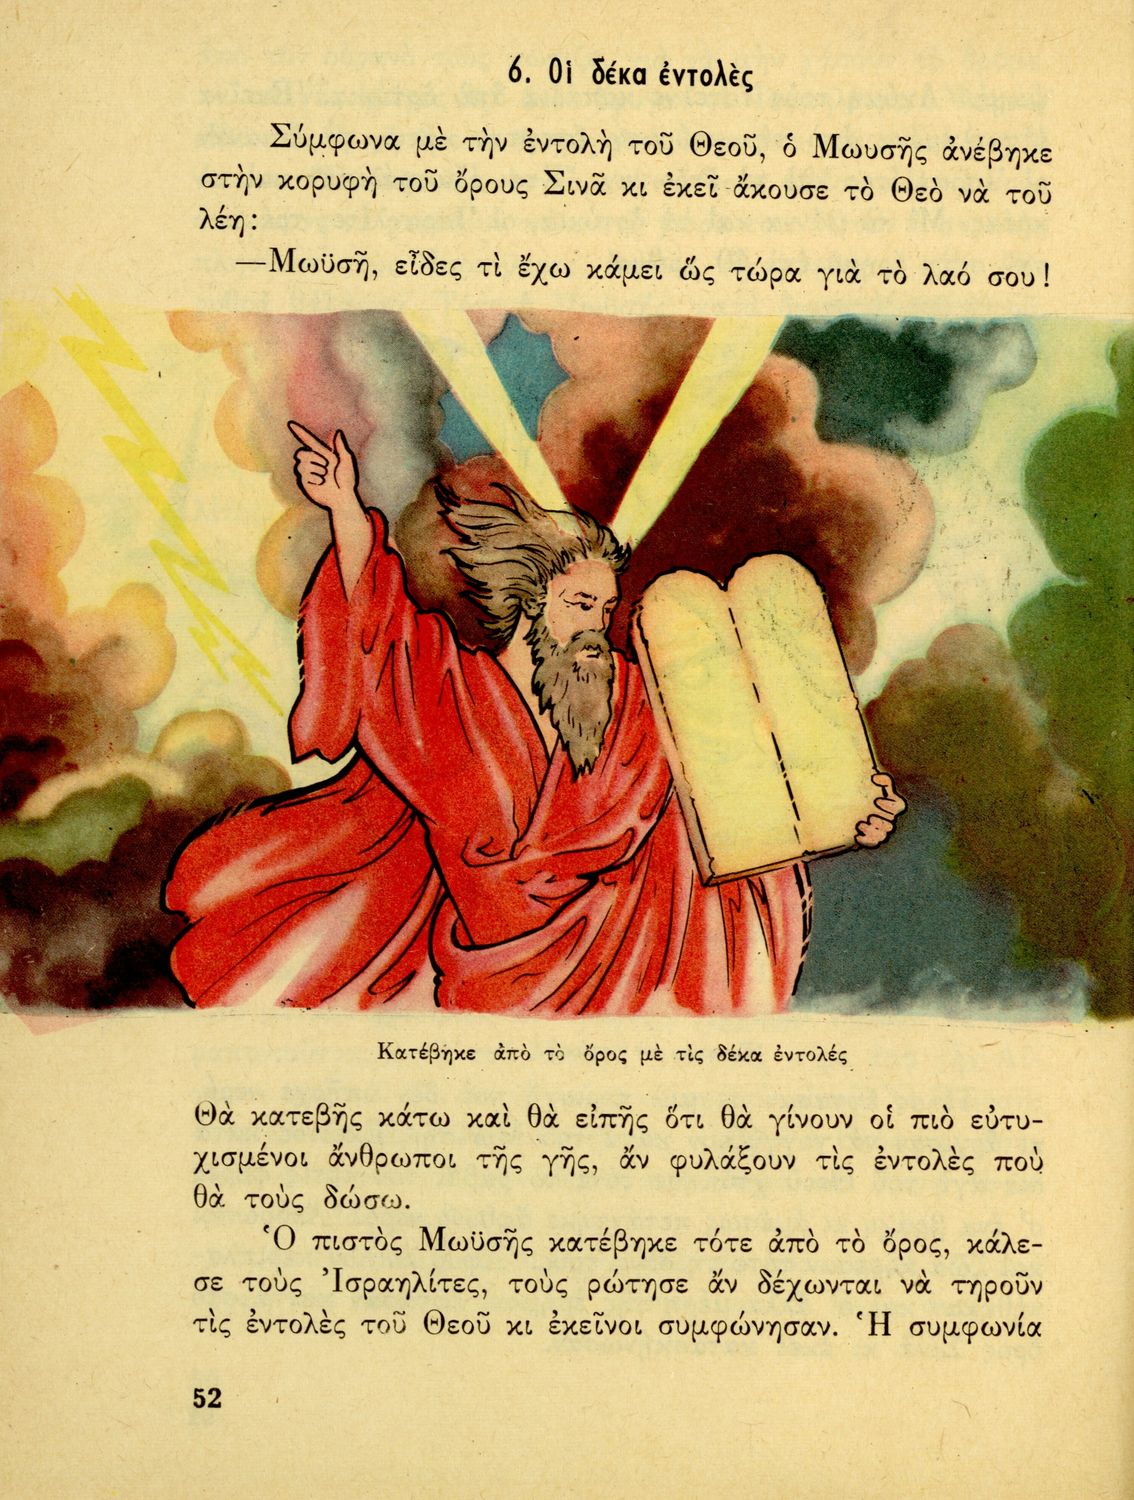 6. Οἱ δέκα ἐντολὲς
Σύμφωνα μὲ τὴν ἐντολὴ τοῦ Θεοῦ, ὁ Μωυσῆς ἀνέβηκε
στὴν κορυφὴ τοῦ ὄρους Σινᾶ κι ἐκεῖ ἄκουσε τὸ Θεὸ νὰ τοῦ
λέη:
—Μωϋσῆ, εἶδες τὶ ἔχω κάμει ὥς τώρα γιὰ τὸ λαό σου!
Κατέβηκε ἀπὸ τὸ ὄρος μὲ τὶς δέκα ἐντολές
Θὰ κατεβῆς κάτω καὶ θὰ εἰπῆς ὅτι θὰ γίνουν οἱ πιὸ εὐτυ-
χισμένοι ἄνθρωποι τῆς γῆς, ἄν φυλάξουν τὶς ἐντολὲς ποὺ
θὰ τοὺς δώσω.
Ὁ πιστὸς Μωϋσῆς κατέβηκε τότε ἀπὸ τὸ ὄρος, κάλε-
σε τοὺς Ἰσραηλίτες, τοὺς ρώτησε ἄν δέχωνται νὰ τηροῦν
τὶς ἐντολὲς τοῦ Θεοῦ κι ἐκεῖνοι συμφώνησαν. Ἡ συμφωνία
52